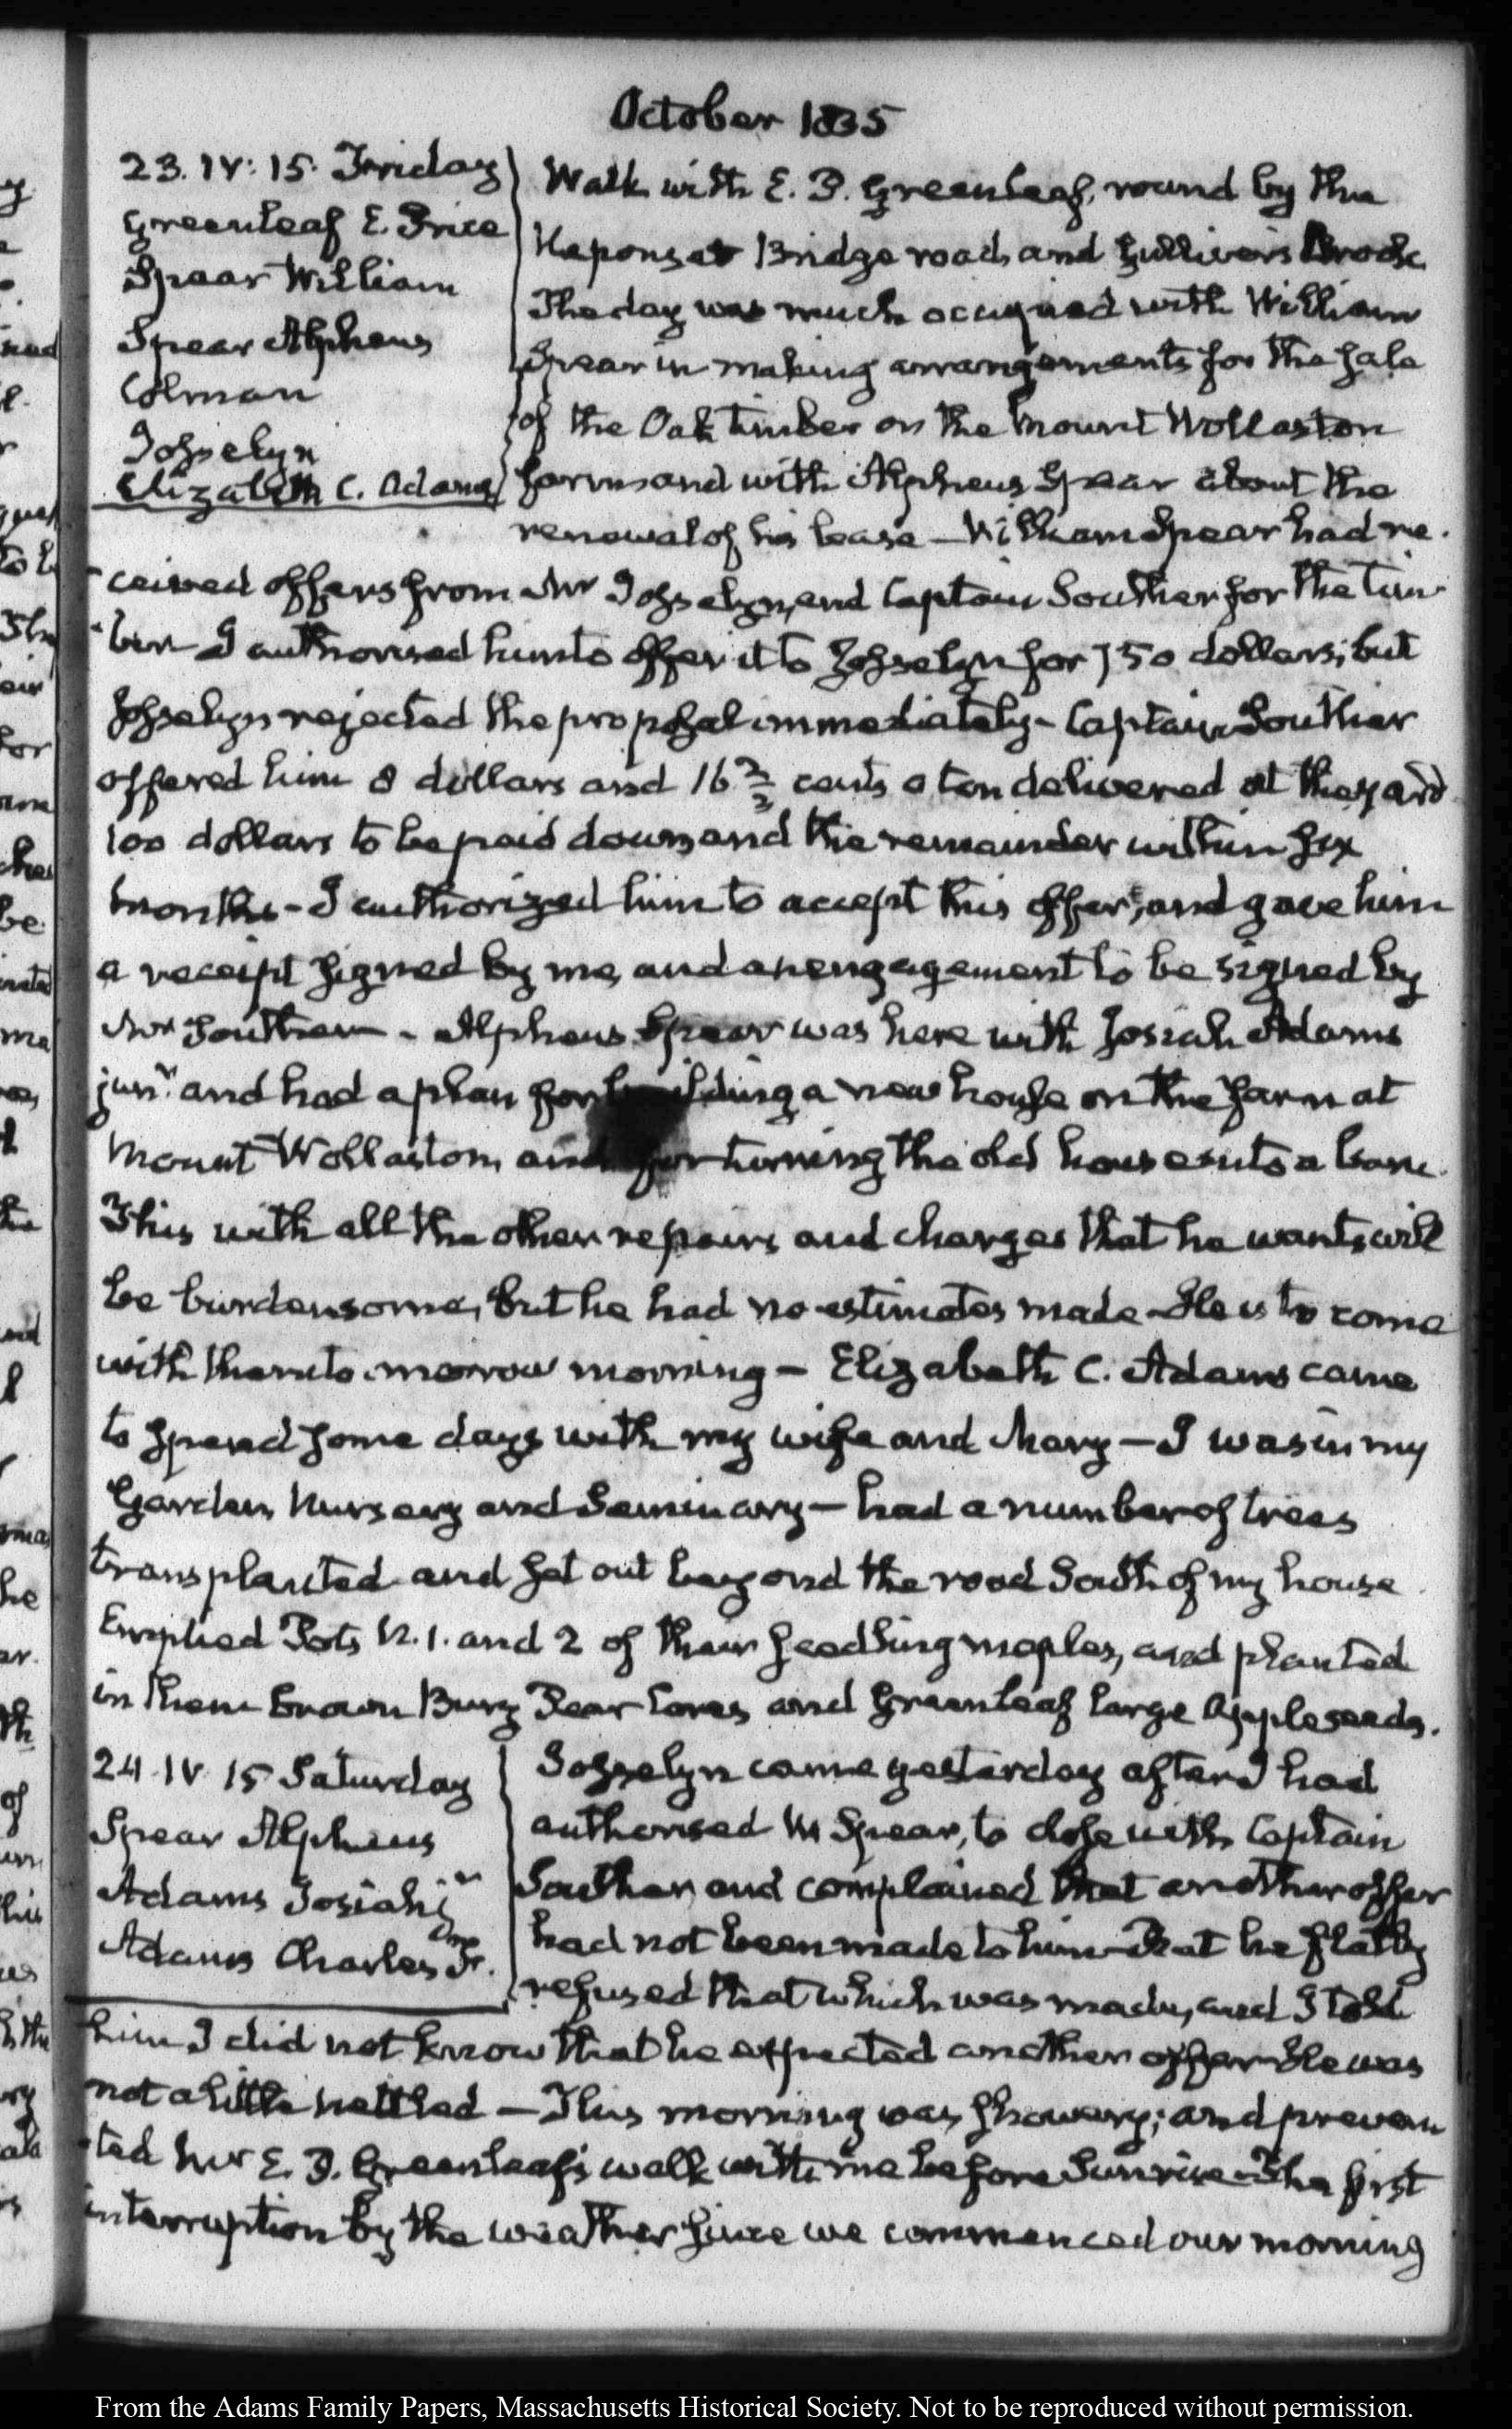 October 1835
23. IV: 15. Friday
Greenleaf E. Price
Spear William
Spear Alpheus
Colman
Josselyn
Elizabeth C. Adams
Walk with E. P. Greenleaf, round by the
Neponset Bridge road, and Gulliver's Brook.
The day was much occupied with William
Spear in making arrangements for the sale
of the Oak timber on the Mount Wollaston
farm and with Alpheus Spear about the
renewal of his lease — William Spear had re-
-ceived offers from Mr Josselyn, and Captain Souther for the tim-
-ber I authorised him to offer it to Josselyn for 750 dollars; but
Josselyn rejected the proposal immediately - Captain Souther
offered him 8 dollars and 16 2/3 cents a ton delivered at the yard
100 dollars to be paid down, and the remainder within six
months - I authorized him to accept this offer, and gave him
a receipt signed by me, and an engagement to be signed by
Mr Souther - Alpheus Spear was here with Josiah Adams
junr. and had a plan for building a new house on the farm at
Mount Wollaston, and for turning the old house into a barn.
This with all the other repairs and charges that he wants, will
be burdensome, but he had no estimates made - He is to come
with them to-morrow morning — Elizabeth C. Adams came
to spend some days with my wife and Mary — I was in my
Garden, Nursery and Seminary — had a number of trees
transplanted and set out beyond the road South of my house
Emptied Pots N. 1. and 2 of their seedling maples, and planted
in them brown Bury Pear cores and Greenleaf large Apple seeds.
24. IV. 15 Saturday
Spear Alpheus
Adams Josiah jr
Adams Charles Fr.
Josselyn came yesterday after I had
authorised W Spear, to close with Captain
Souther, and complained that another offer
had not been made to him - But he flatly
refused that which was made, and I told
him I did not know that he expected another offer - He was
not a little nettled — This morning was showery; and preven-
-ted Mr E. P. Greenleaf's walk with me before Sunrise - The first
interruption by the weather since we commenced our morning
From the Adams Family Papers, Massachusetts Historical Society. Not to be reproduced without permission.